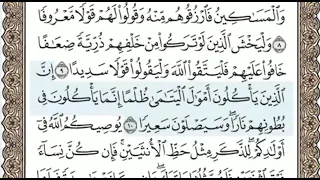 وَٱلْمَسَٰكِينُ فَٱرْزُقُوهُم مِّنْهُ وَقُولُوا۟ لَهُمْ قَوْلًا مَّعْرُوفًا
٨ وَلْيَخْشَ ٱلَّذِينَ لَوْ تَرَكُوا۟ مِنْ خَلْفِهِمْ ذُرِّيَّةً ضِعَٰفًا
خَافُوا۟ عَلَيْهِمْ فَلْيَتَّقُوا۟ ٱللَّهَ وَلْيَقُولُوا۟ قَوْلًا سَدِيدًا ٩ إِنَّ
ٱلَّذِينَ يَأْكُلُونَ أَمْوَٰلَ ٱلْيَتَٰمَىٰ ظُلْمًا إِنَّمَا يَأْكُلُونَ فِى
بُطُونِهِمْ نَارًا ۖ وَسَيَصْلَوْنَ سَعِيرًا ١٠ يُوصِيكُمُ ٱللَّهُ فِىٓ
أَوْلَٰدِكُمْ ۖ لِلذَّكَرِ مِثْلُ حَظِّ ٱلْأُنثَيَيْنِ ۚ فَإِن كُنَّ نِسَآءً